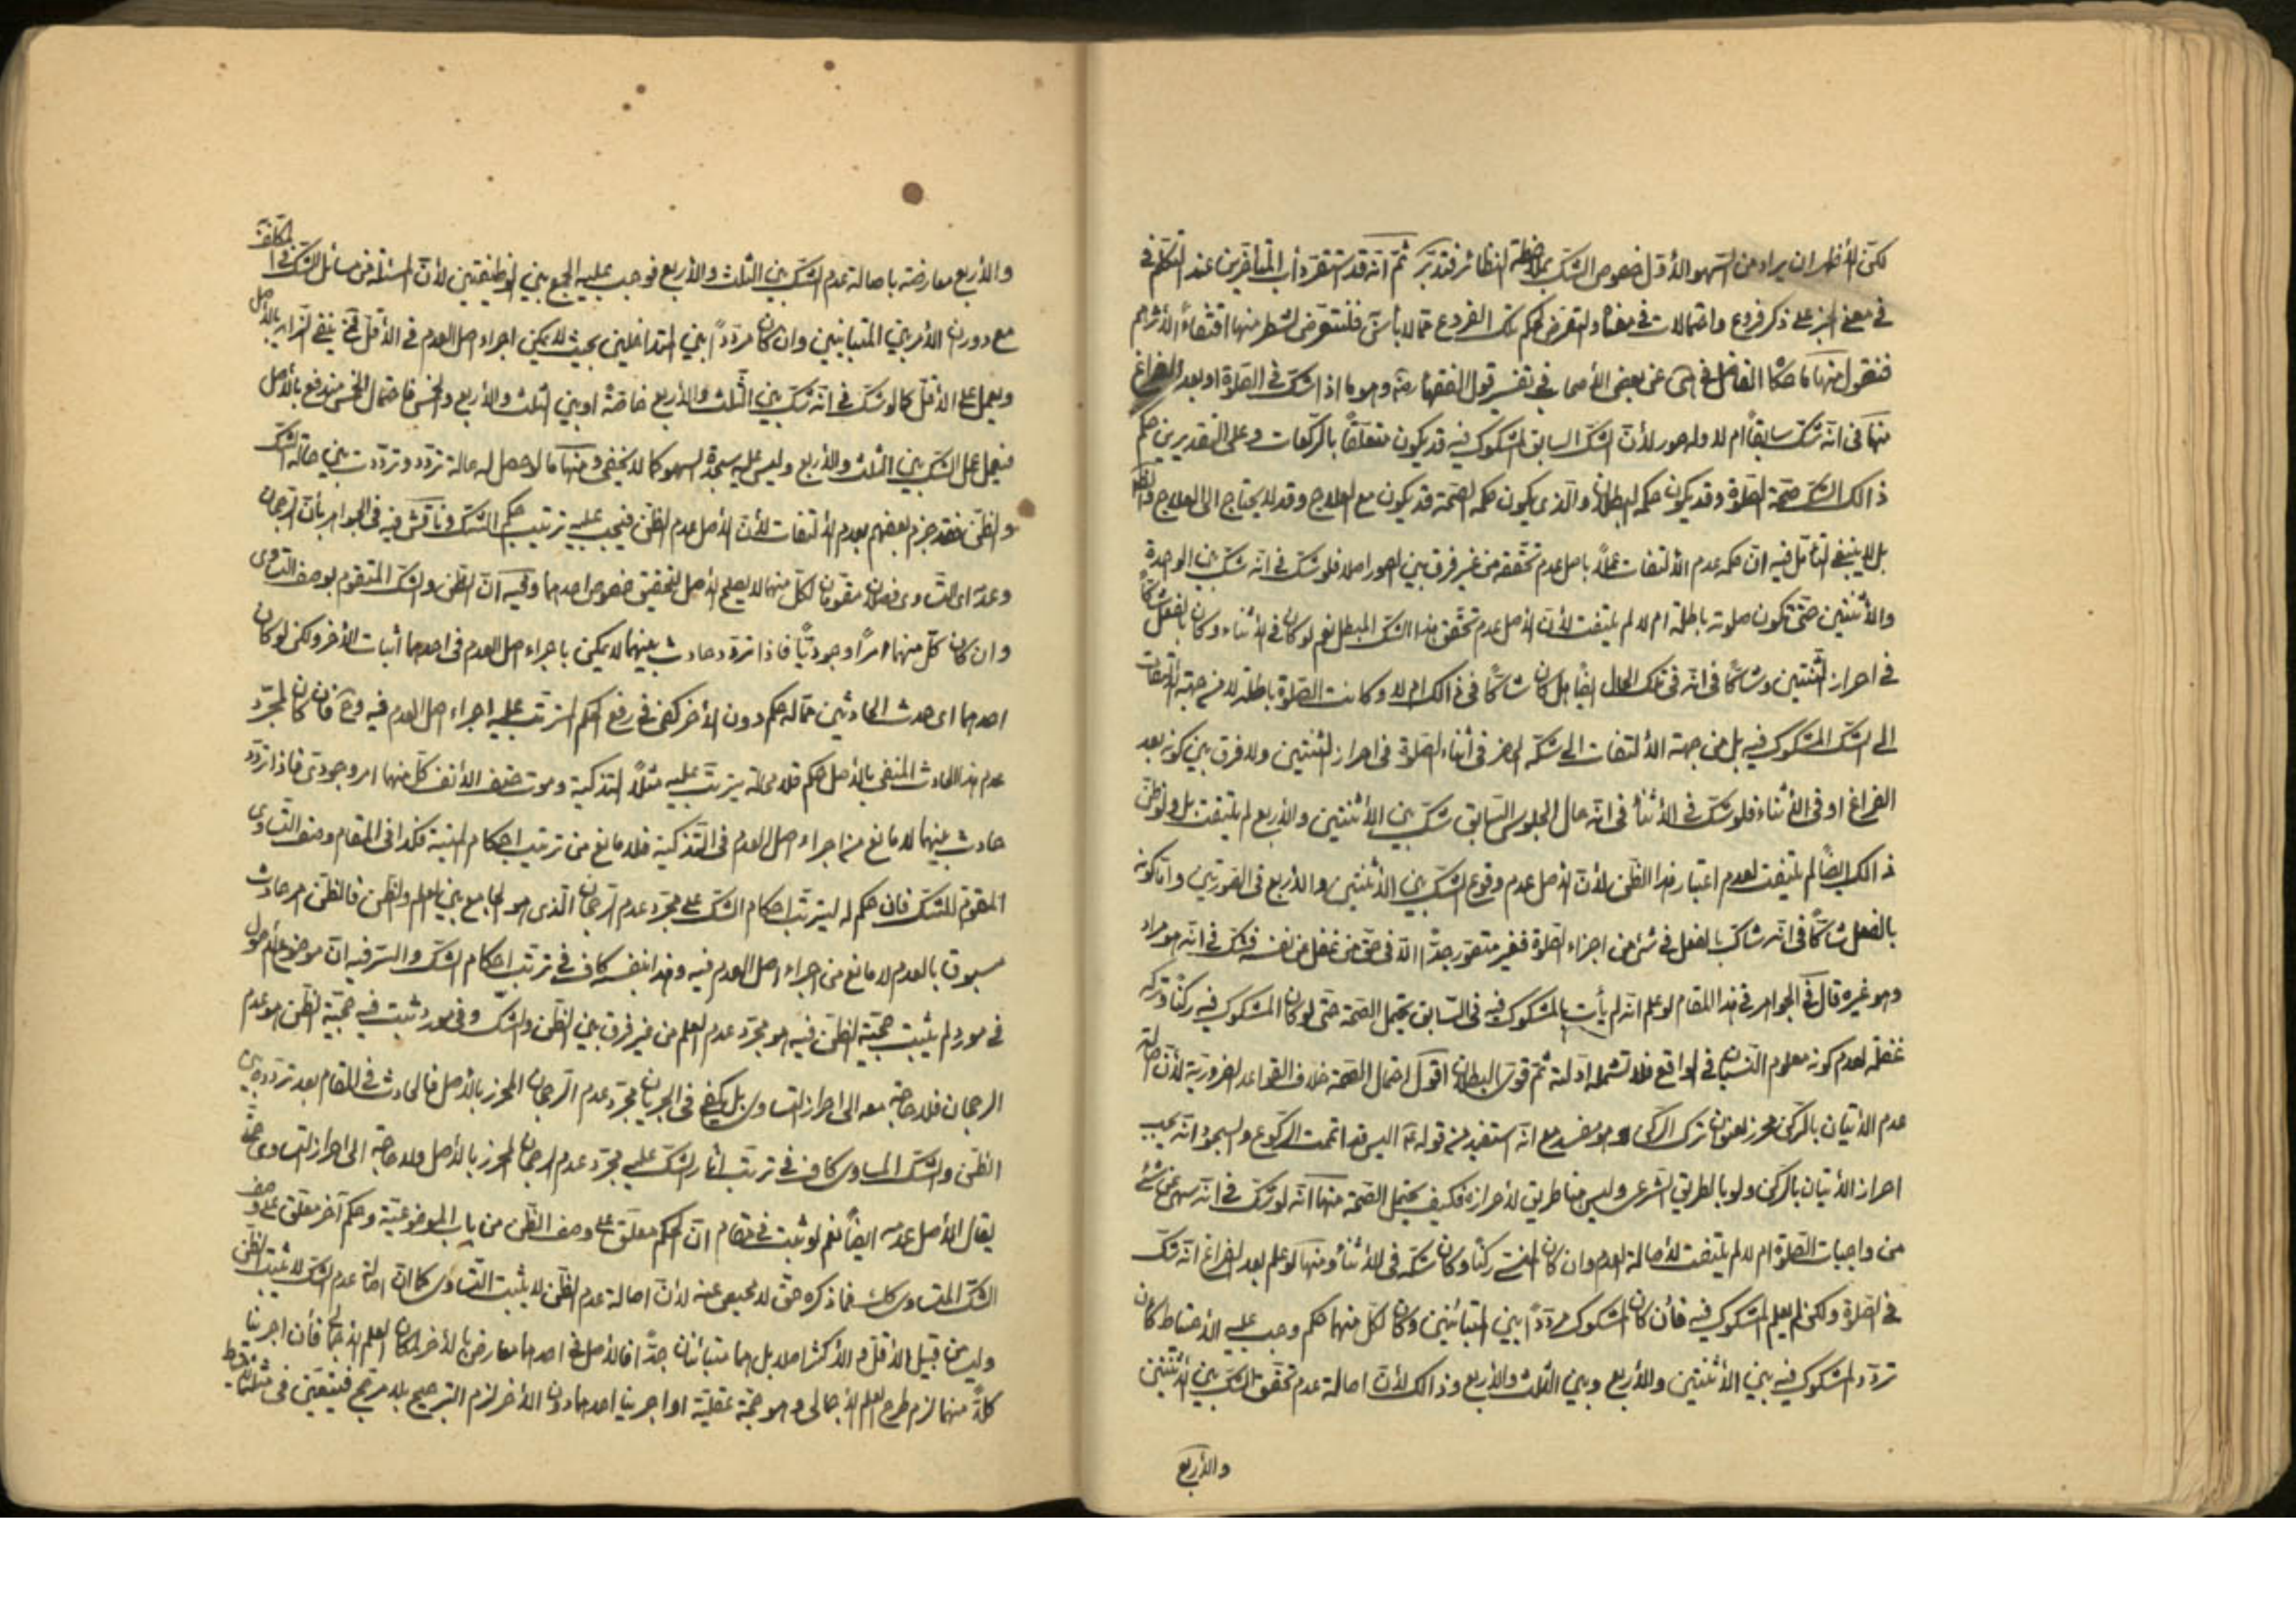 لكن الأظهر ان يراد من السهو الأول خصوص الشك بملاحظة النظائر فتدبر ثم انه قد استقر دأب المتأخرين عند التكلم في
في معنى الخبر على ذكر فروع واحتمالات في معناه والتعرض لحكم تلك الفروع مما لا بأس فلنتعرض لشطر منها اقتفاءً لأثرهم
فنقول منها ما حكاه الفاضل في عن بعض الأصحاب في تفسير قول الفقهاء وهو ما اذا شك في الصلوة او بعد الفراغ
منها في انه شك سابقاً ام لا وله صور لأن الشك السابق المشكوك فيه قد يكون متعلقاً بالركعات وعلى التقديرين حكم
ذالك الشك صحة الصلوة وقد يكون حكمه البطلان والذي يكون حكمه الصحة قد يكون مع العلاج وقد لا يحتاج الى العلاج
بل لا ينبغي التأمل فيه ان حكمه عدم الألتفات عملاً باصل عدم تحققه من غير فرق بين الصور اصلا فلو شك في انه شك بين الواحدة
والأثنتين حتى تكون صلوته باطلة ام لا لم يلتفت لأن الأصل عدم تحقق هذا الشك المبطل نعم لو كان في الأثناء وكان بالفعل شاكاً
في احراز الثنتين وشاكاً في انه في تلك الحال ايضاً هل كان شاكاً في ذالك ام لا وكانت الصلوة باطلة لا من جهة التفات
الى الشك المشكوك فيه بل من جهة الألتفات الى شكه الحاضر في أثناء الصلوة في احراز الثنتين ولا فرق بين كونه بعد
الفراغ او في الأثناء فلو شك في الأثناء في انه حال الجلوس السابق شك بين الأثنتين والأربع لم يلتفت بل ولو ظن
ذالك ايضاً لم يلتفت لعدم اعتبار هذا الظن لأن الأصل عدم وقوع الشك بين الأثنتين والأربع في الصورتين واما كونه
بالفعل شاكاً في انه شاك بالفعل في شئ من اجزاء الصلوة فغير متصور جداً الا في حق من غفل عن نفسه فشك في انه هو مراد
وهو غيره قال في الجواهر في هذا المقام لو علم انه لم يأت بالمشكوك فيه في السابق يحتمل الصحة حتى لو كان المشكوك فيه ركناً وتركه
غفلة لعدم كونه معلوم النسيان في الواقع فلا تشمله ادلته ثم قوى البطلان اقول احتمال الصحة خلاف القواعد الضرورية لأن اصالة
عدم الأتيان بالركن محرز لعنوان ترك الركن وهو مفسد مع انه استفيد من قوله اليس قد اتممت الركوع والسجود انه يجب
احراز الأتيان بالركن ولو بالطريق الشرعي وليس هنا طريق لأحرازه فكيف يحتمل الصحة منها انه لو شك في انه سهى عن شئ
من واجبات الصلوة ام لا لم يلتفت لأصالة العدم وان كان المنسي ركناً وكان شكه في الأثناء ومنها لو علم بعد الفراغ انه شك
في الصلوة ولكن لم يعلم المشكوك فيه فأن كان المشكوك مردداً بين المتبائنين وكان لكل منهما حكم وجب عليه الأحتياط كان
تردد المشكوك فيه بين الأثنتين والأربع وبين الثلث والأربع وذالك لأن اصالة عدم تحقق الشك بين الأثنتين
والأربع
والأربع معارضة باصالة عدم الشك بين الثلث والأربع فوجب عليه الجمع بين الوظيفتين لأن المسئلة من مسائل الشك في المكلف به
مع دوران الأمر بين المتباينين وان كان مردداً بين المتداخلين بحيث لا يمكن اجراء اصل العدم في الأقل ينفى الزايد بالأصل
ويعمل على الأقل كما لو شك في انه شك بين الثلث والأربع خاصة او بين الثلث والأربع والخمس فاحتمال الخمس مندفع بالأصل
فيعمل عمل الشك بين الثلث والأربع وليس عليه سجدة السهو كما لا يخفى ومنها ما لو حصل له حالة تردد وترددت بين حالة الشك
والظن فقد جزم بعضهم بعدم الألتفات لأن الأصل عدم الظن فيجب عليه ترتيب حكم الشك وناقش فيه في الجواهر بأن الرجحان
وعدمه اي التساوي فصلان مقومان لكل منهما لا يصلح الأصل لتحقيق خصوص احدهما وفيه ان الظن والشك المتقوم بوصف التساوي
وان كان كل منهما امراً وجودياً فاذا تردد حادث بينهما لا يمكن باجراء اصل العدم في احدهما أثبات الأخر ولكن لو كان
احدهما اي حدث الحادثين مما له حكم دون الأخر كفى في رفع الحكم المترتب عليه اجراء اصل العدم فيه وح فان كان لمجرد
عدم هذا الحادث المنفي بالأصل حكم فلا محالة يترتب عليه مثلاً التذكية وموت حتف الأنف كل منهما امر وجودي فاذا تردد
حادث بينهما لا مانع من اجراء اصل العدم في التذكية فلا مانع من ترتيب احكام الميتة فكذا في المقام وصف التساوي
المقوم للشك فان حكم له ليترتب احكام الشك على مجرد عدم الرجحان الذي هو الجامع بين العلم والظن فالظن امر حادث
مسبوق بالعدم لا مانع من اجراء اصل العدم فيه وهذا بنفسه كاف في ترتيب احكام الشك والسر فيه ان موضوع الأصول
في مورد لم يثبت حجية الظن فيه هو مجرد عدم العلم من غير فرق بين الظن والشك وفي مورد ثبت فيه حجية الظن هو عدم
الرجحان فلا حاجة معه الى احراز التساوي بل يكفي في الجريان مجرد عدم الرجحان المحرز بالأصل فالحادث في المقام بعد تردده بين
الظن والشك المساوي كاف في ترتيب أثار الشك عليه مجرد عدم الرجحان المحرز بالأصل ولا حاجة الى احراز التساوي حتى
يقال الأصل عدمه ايضاً نعم لو ثبت في مقام ان الحكم معلق على وصف الظن من باب الموضوعية وحكم آخر معلق على وصف
الشك المتساوي كك فما ذكره حق لا محيص عنه لأن اصالة عدم الظن لا يثبت التساوي كما ان اصالة عدم الشك لا يثبت الظن
وليس من قبيل الأقل و الأكثر اصلا بل هما متبائنان جداً فالأصل في احدهما معارض بالأخر لمكان العلم الأجمالي فأن اجرينا
كلاً منهما لزم طرح العلم الأجمالي وهو حجة عقلية او اجرينا احدهما دون الأخر لزم الترجيح بلا مرجح فيتعين في